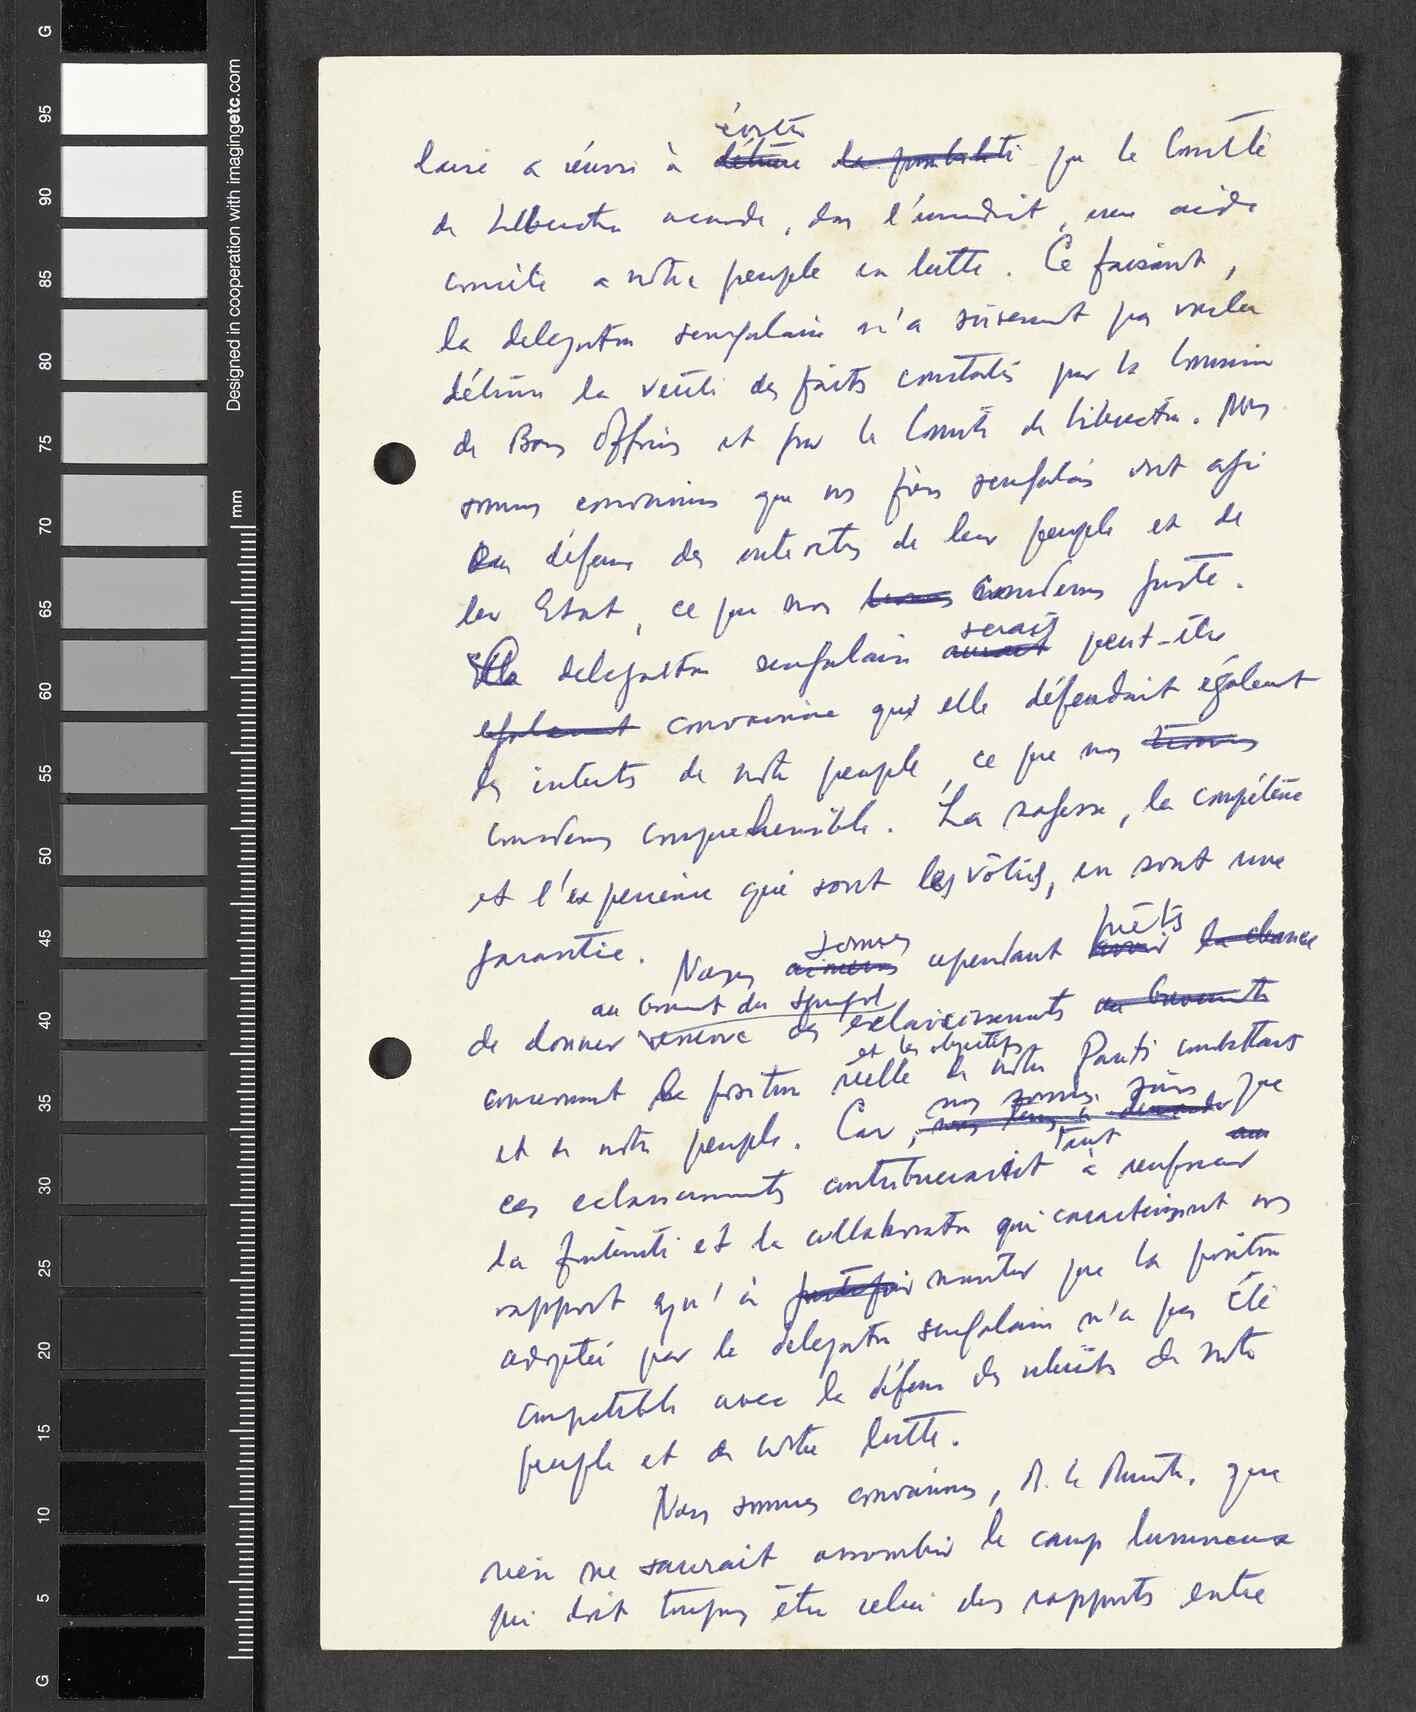 G
95
90
85
80
75
70
65
60
55
50
45
40
35
30
25
20
15
10
5
G
Designed in cooperation with imagingetc.com
mm
éviter
laise a réussi à détruire la possibilité que le Comité
de Libération accorde, dans l'immédiat, une aide
concrète a notre peuple en lutte. Ce faisant,
la delegation senegalaise n'a surement pas voulu
détruire la verité des faits constatés par la Commission
de Bons Offices et par le Comité de Libération. Nous
sommes convaincus que nos frères senegalais ont agi
en défense des interets de leur peuple et de
leur Etat, ce que nous considerons juste.
La delegation senegalaise aurait serait peut-être
egalement convaincue qu'elle défendait également
les interets de notre peuple, ce que nous trouvons
considerons comprehensible. La sagesse, la compétence
et l'experience qui sont les vôtres, en sont une
garantie. Nous aimerions sommes cependant avoir prêts la chance
au Gouvernement du Senegal
de donner encore des eclaircissements au Gouvernement
et les objectifs
concernant la position réelle de notre Parti combattant
nous sommes sûrs
et de notre peuple. Car, que
ces eclaircissements contribueraient tant à renforcer
la fraternité et la collaboration qui caracterisent nos
rapports qu'à justifier montrer que la position
adoptée par la delegation senegalaise n'a pas été
compatible avec la défense des interêts de notre
peuple et de notre lutte.
Nous sommes convaincus, M. le Ministre, que
rien ne saurait assombrir le camp lumineux
qui doit toujours être celui des rapports entre